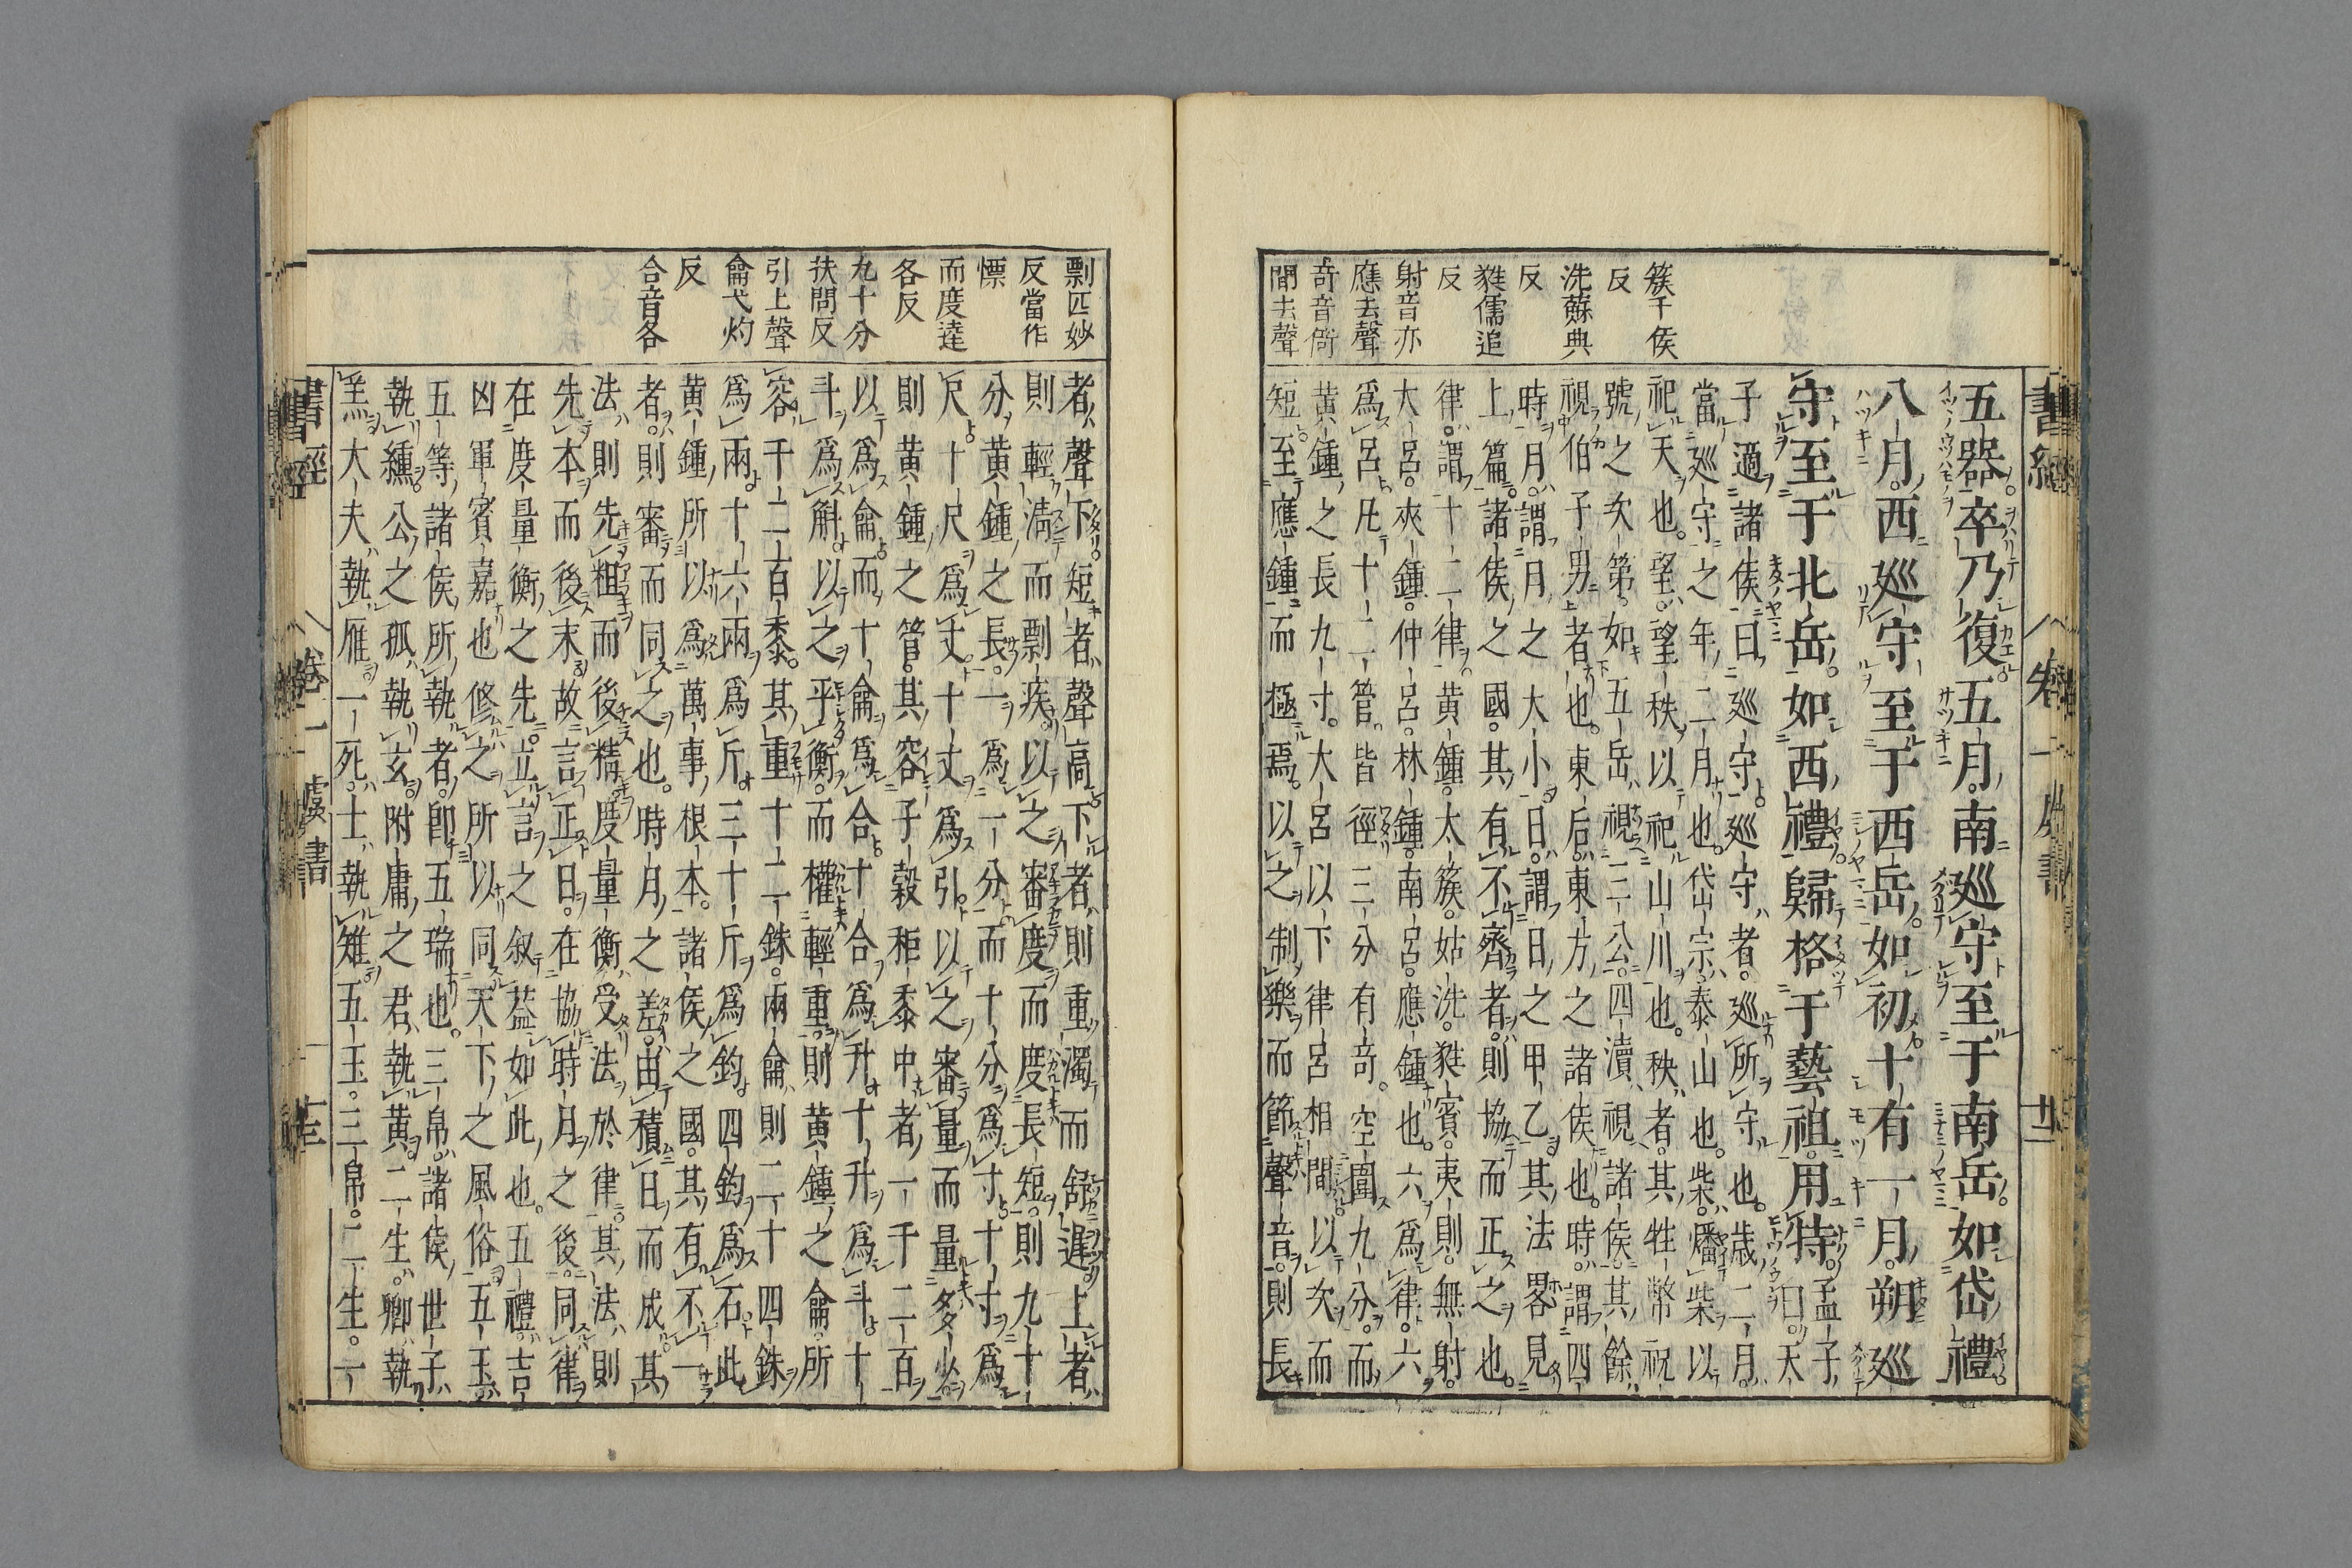 五器。卒乃復。五月。南巡守至于南岳。如岱禮
八月。西巡守至于西岳。如初。十有一月。朔巡
守至于北岳。如西禮。歸格于藝祖。用特。孟子曰。天
子適諸侯曰巡守。巡守者。巡所守也。歲二月。
當巡守之年二月也。岱宗。泰山也。柴。燔柴以
祀天也。望。望秩以祀山川也。秩者。其牲幣祝
號之次第。如五岳視三公。四瀆視諸侯。其餘
視伯子男者也。東后。東方之諸侯也。時。謂四
時。月。謂月之大小。日。謂日之甲乙。其法畧見
上篇。諸侯之國。其有不齊者。則協而正之也。
律。謂十二律。黄鍾。太簇。姑洗。蕤賓。夷則。無射。
大呂。夾鍾。仲呂。林鍾。南呂。應鍾也。六爲律。六
爲呂。凡十二管。皆徑三分有竒。空圍九分。而
黄鍾之長九寸。大呂以下律呂相間。以次而
短。至應鍾而極焉。以之制樂而節聲音。則長
簇千侯
反
洗蘇典
反
蕤儒追
反
射音亦
應去聲
竒音倚
間去聲
書經 卷一 虞書 十二
者聲下。短者聲高。下者則重濁而舒遲。上者
則輕清而剽疾。以之審度而度長短。則九十
分黄鍾之長。一爲一分。而十分爲寸。十寸爲
尺。十尺爲丈。十丈爲引。以之審量而量多少。
則黄鍾之管。其容子穀秬黍中者一千二百
以爲龠。而十龠爲合。十合爲升。十升爲斗。十
斗爲斛。以之平衡。而權輕重。則黄鍾之龠。所
容千二百黍。其重十二銖。兩龠則二十四銖
爲兩。十六兩爲斤。三十斤爲鈞。四鈞爲石。此
黄鍾所以爲萬事根本。諸侯之國。其有不一
者。則審而同之也。時月之差。由積日而成。其
法則先粗而後精。度量衡受法於律。其法則
先本而後末。故言正日。在協時月之後。同律
在度量衡之先。立言之叙。蓋如此也。五禮。吉
凶軍賓嘉也。修之。所以同天下之風俗。五玉。
五等諸侯所執者。卽五瑞也。三帛。諸侯世子
執纁。公之孤執玄。附庸之君執黄。二生。卿執
羔。大夫執雁。一死。士執雉。五玉。三帛。二生。一
剽匹妙
反當作
慓
而度達
各反
九十分
扶問反
引上聲
龠弋灼
反
合音各
書經 卷一 虞書 十三